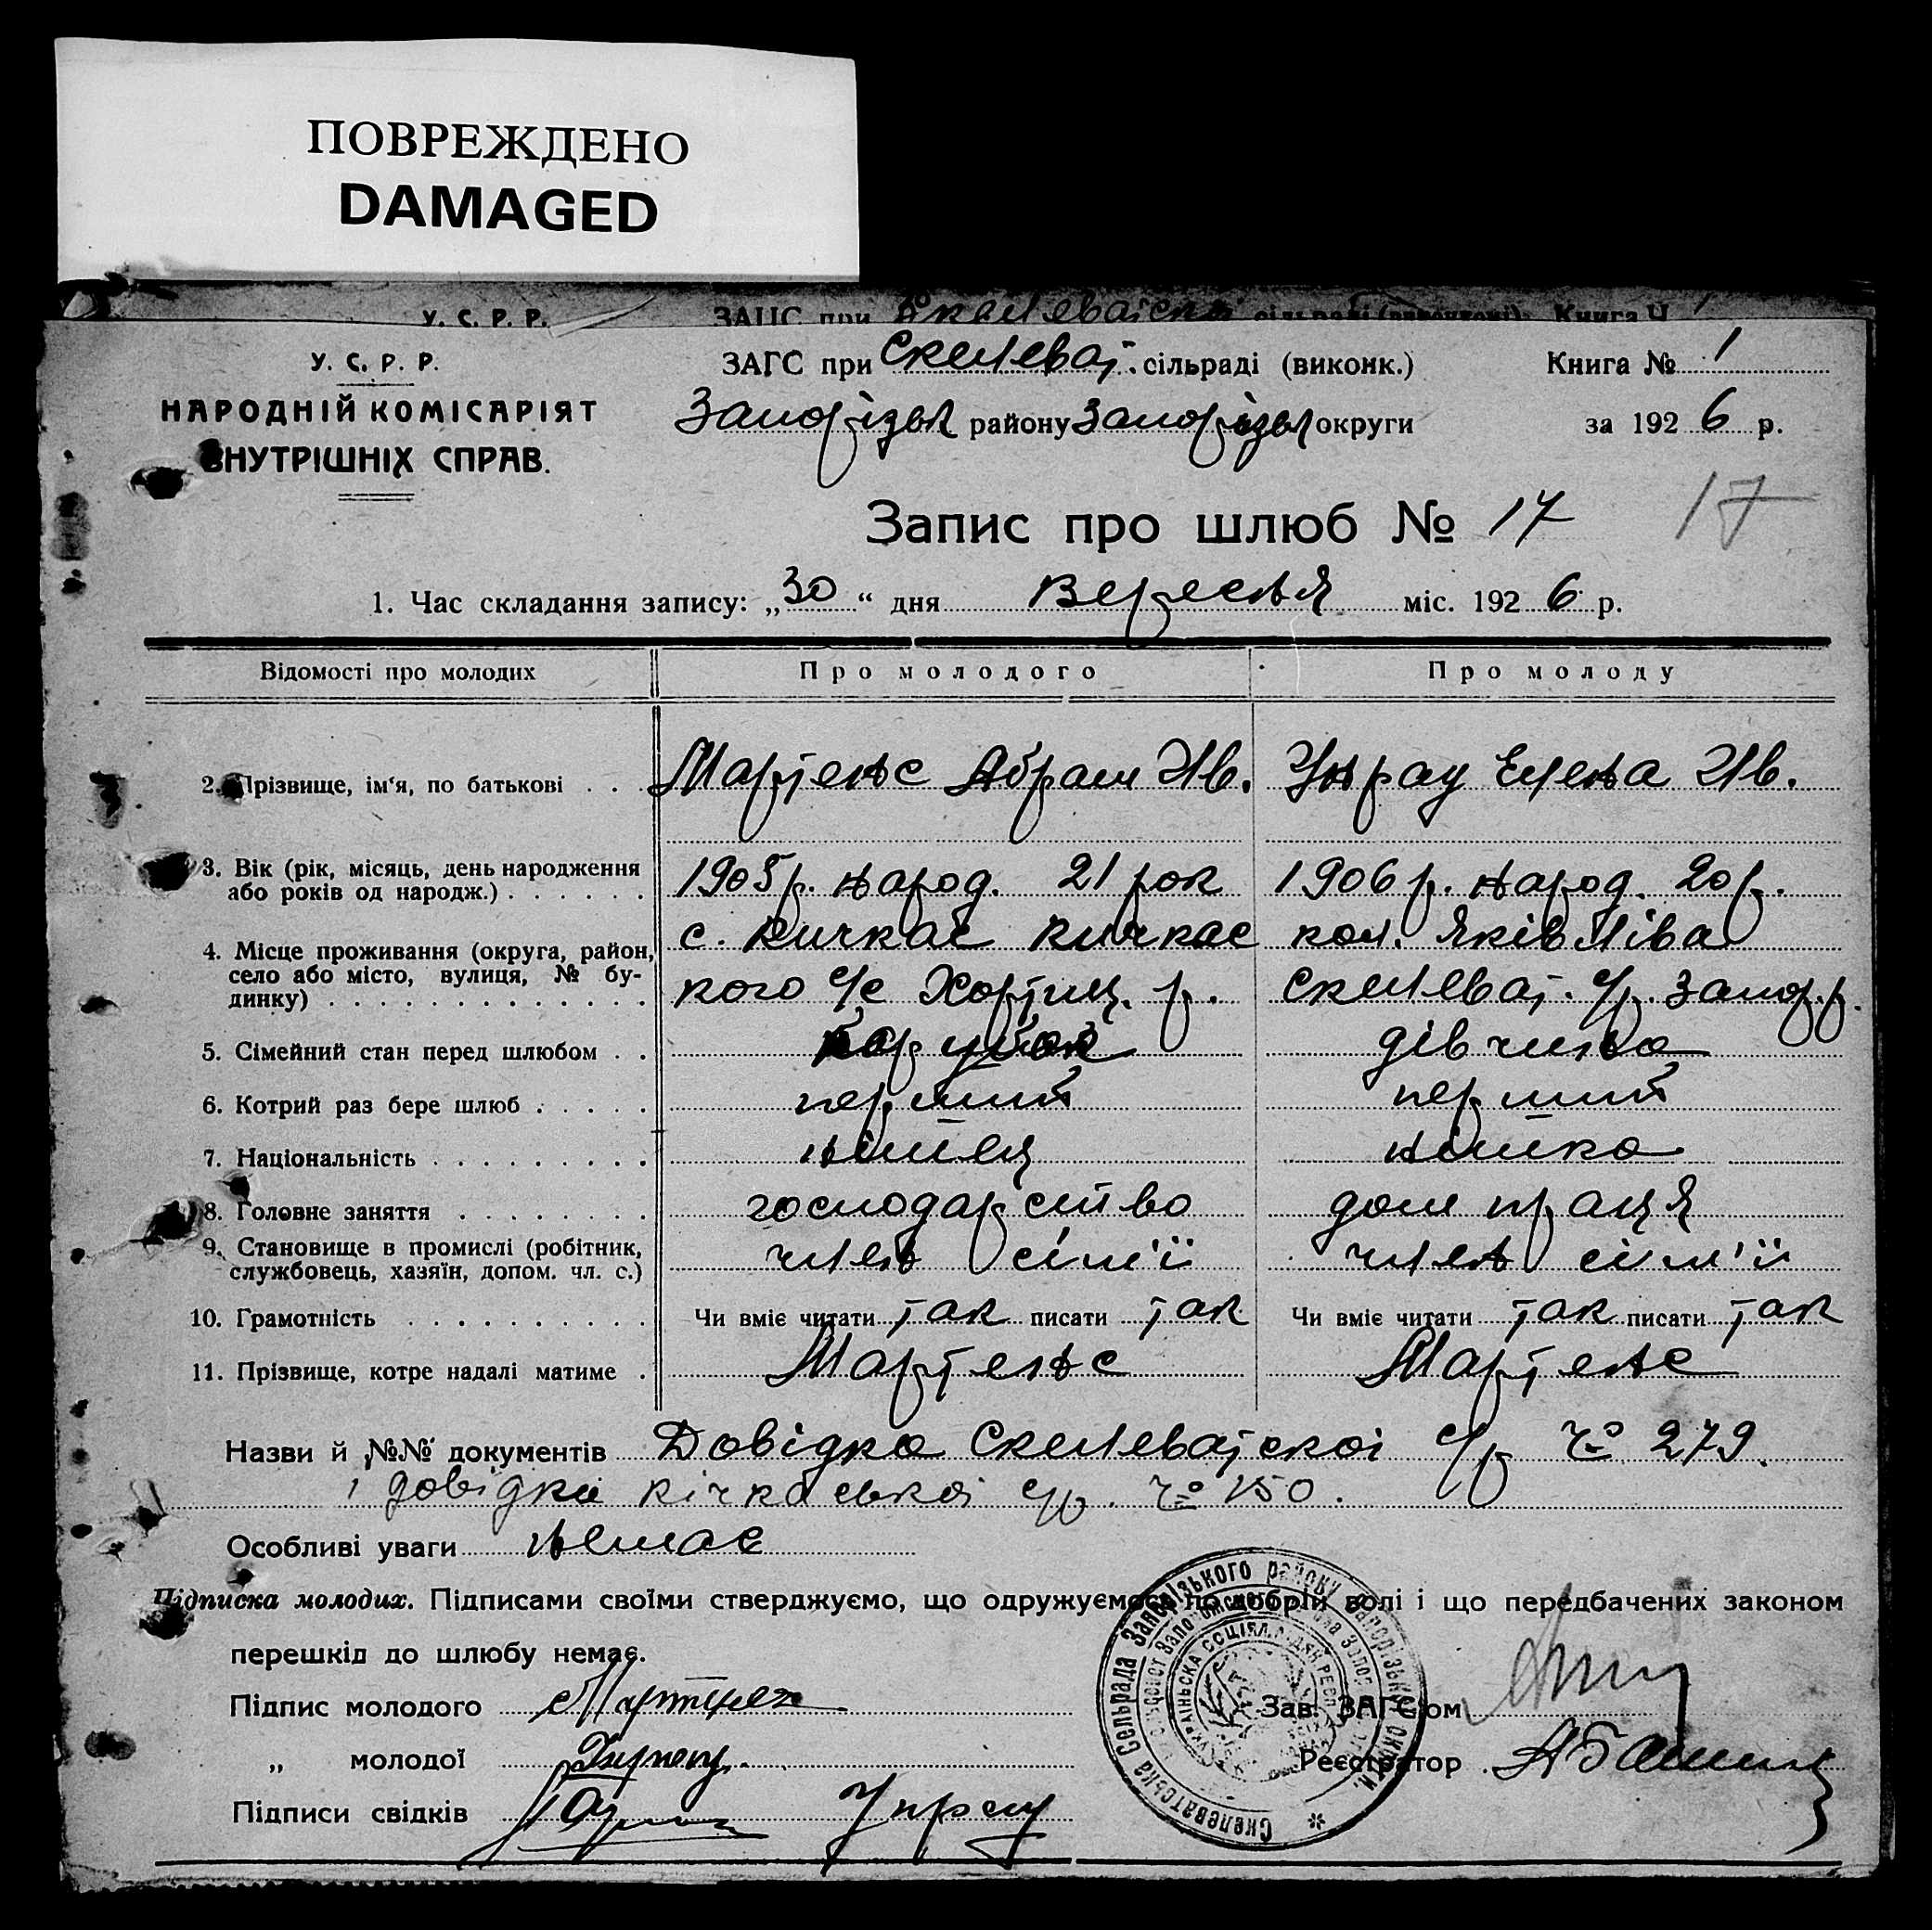 ПОВРЕЖДЕНО
DAMAGED
У. С. Р. Р. ЗАГС при
У. С. Р. Р. ЗАГС при Скелеват. сільраді (виконк.) Книга № 1
НАРОДНІЙ КОМІСАРІЯТ Запорізьк району Запорізьк округи за 1926 р.
ВНУТРІШНІХ СПРАВ.
Запис про шлюб № 17 17
1. Час складання запису: „30“ дня Вересня міс. 1926 р.
Відомості про молодих Про молодого Про молоду
2. Прізвище, ім'я, по батькові . . . Мартенс Абрам Ив. Унрау Елена Ив.
3. Вік (рік, місяць, день народження
або років од народж.) . . . . . . 1905 р. народ. 21 рок 1906 р. народ. 20 р.
4. Місце проживання (округа, район, с. Кичкас Кичкас кол. Яківліва
село або місто, вулиця, № бу-
динку) . . . . . . . . . . . . . кого с/с Хортиц. р. Скелеват. с/р. Запор. р.
5. Сімейний стан перед шлюбом . . парубок дівчина
6. Котрий раз бере шлюб . . . . . перший перший
7. Національність . . . . . . . . . німец німка
8. Головне заняття . . . . . . . . господарство дом праця
9. Становище в промислі (робітник,
службовець, хазяїн, допом. чл. с.) член сім'ї член сім'ї
10. Грамотність . . . . . . . . . . Чи вміє читати так писати так Чи вміє читати так писати так
11. Прізвище, котре надалі матиме . Мартенс Мартенс
Назви й №№ документів Довідка Скелеватскоі с/р ч° 279.
і довідка кічкаськоі с/р. ч° 150.
Особливі уваги немає
Підписка молодих. Підписами своїми стверджуємо, що одружуємось по добрій волі і що передбачених законом
перешкід до шлюбу немає.
Підпис молодого Мартенс Зав. ЗАГС'ом
„ молодої Реєстратор
Підписи свідків Унрау
Скелеватська Сельрада Запорізького району Запорізької округи